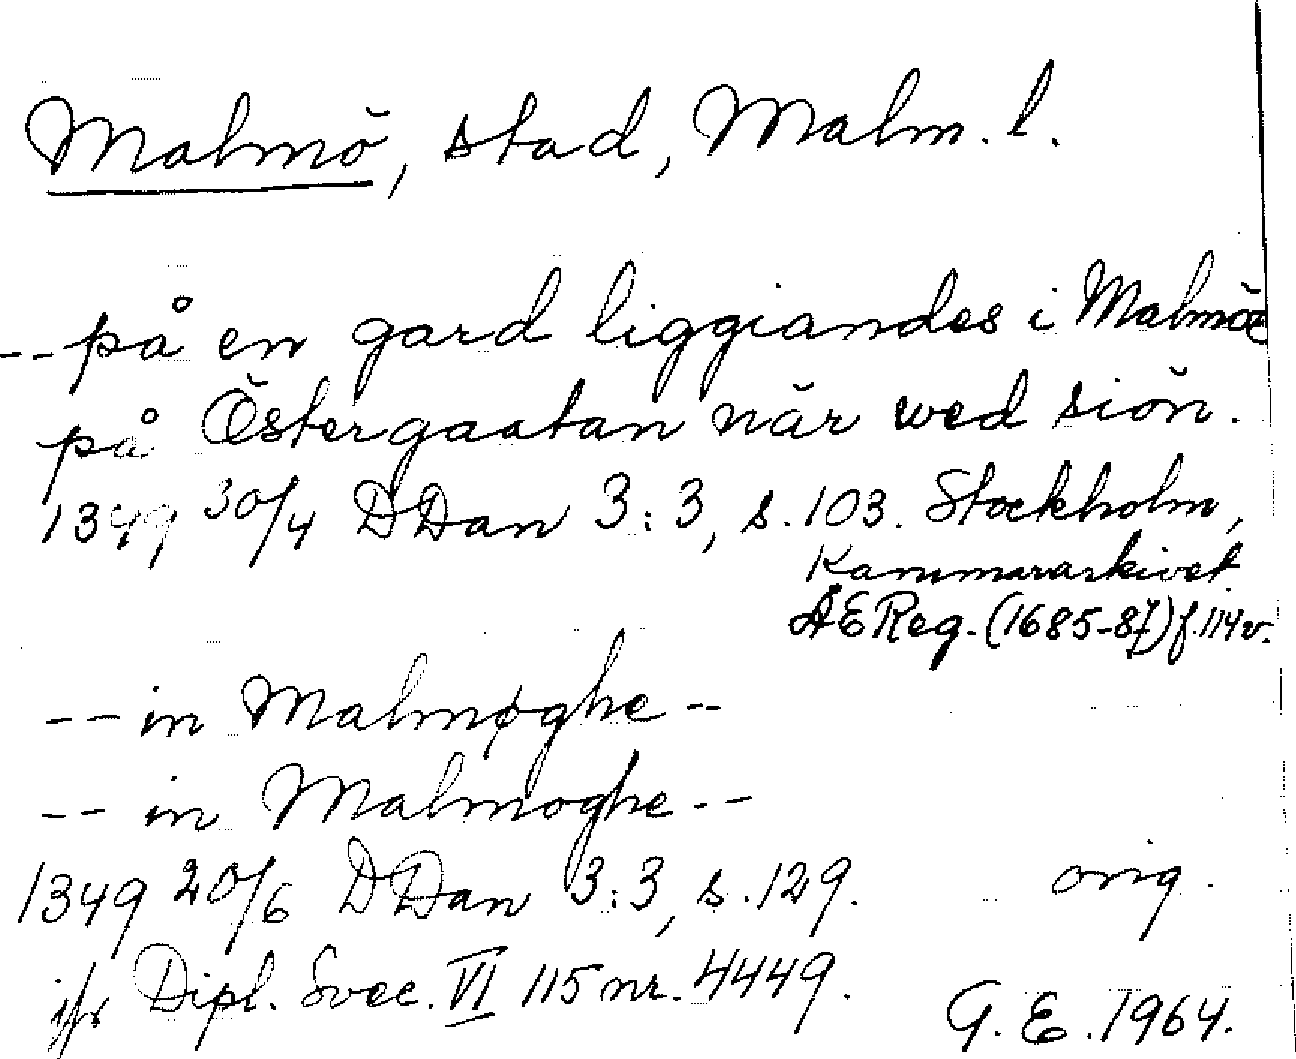 Malmö, stad, Malm. l.
-- på en gard liggiandes i Malmöe
på Östergaatan när wed siön.
1349 30/4 DDan 3:3, s. 103. Stockholm,
Kammararkivet
ÄEReg. (1685-87) f. 114v.
-- in Malmøghe --
-- in Malmoghe --
1349 20/6 DDan 3:3, s. 129. orig.
jfr Dipl. Svec. VI 115 nr. 4449.
G. E. 1964.